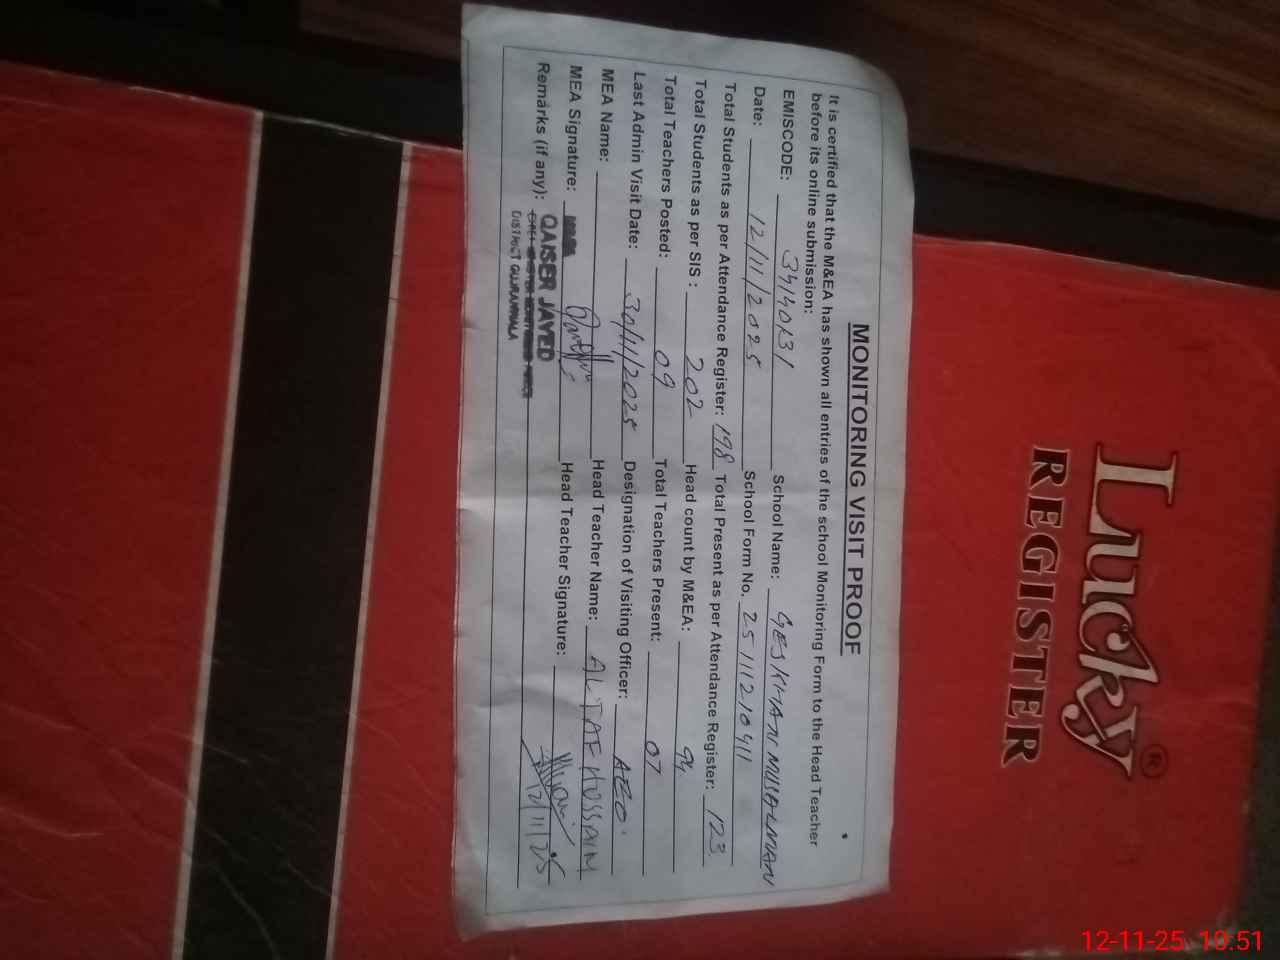 MONITORING VISIT PROOF
It is certified that the M&EA has shown all entries of the school Monitoring Form to the Head Teacher
before its online submission:
EMISCODE: School Name: GES KHAN MUSALMAN
Date: 12/11/2025 School Form No. 25111210411
Total Students as per Attendance Register: 198 Total Present as per Attendance Register: 123
Total Students as per SIS : 202 Head count by M&EA: 94
Total Teachers Posted: 09 Total Teachers Present: 07
Last Admin Visit Date: Designation of Visiting Officer: AEO
MEA Name: Head Teacher Name: ALTAF HUSSAIN
MEA Signature: Head Teacher Signature:
12/11/25
Remarks (if any): QAISER JAVED
DISTRICT GUJRANWALA
Lucky®
REGISTER
12-11-25 10:51